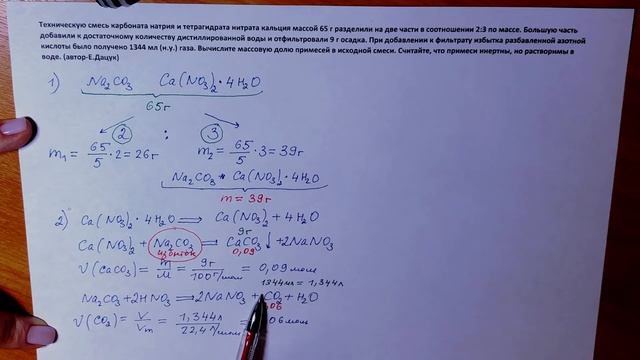 Техническую смесь карбоната натрия и тетрагидрата нитрата кальция массой 65 г разделили на две части в соотношении 2:3 по массе. Большую часть
добавили к достаточному количеству дистиллированной воды и отфильтровали 9 г осадка. При добавлении к фильтрату избытка разбавленной азотной
кислоты было получено 1344 мл (н.у.) газа. Вычислите массовую долю примесей в исходной смеси. Считайте, что примеси инертны, но растворимы в
воде. (автор-Е.Дацук)
1) Na₂CO₃ Ca(NO₃)₂·4H₂O
65г
2 : 3
m₁ = 65/5 · 2 = 26г m₂ = 65/5 · 3 = 39г
Na₂CO₃ + Ca(NO₃)₂·4H₂O
m = 39г
2) Ca(NO₃)₂·4H₂O ⟹ Ca(NO₃)₂ + 4H₂O
9г
Ca(NO₃)₂ + Na₂CO₃ ⟹ CaCO₃↓ + 2NaNO₃
избыток 0,09
ν(CaCO₃) = m/M = 9г/100г/моль = 0,09 моль
1344мл = 1,344л
Na₂CO₃ + 2HNO₃ ⟹ 2NaNO₃ + CO₂ + H₂O
ν(CO₂) = V/Vm = 1,344л/22,4л/моль =